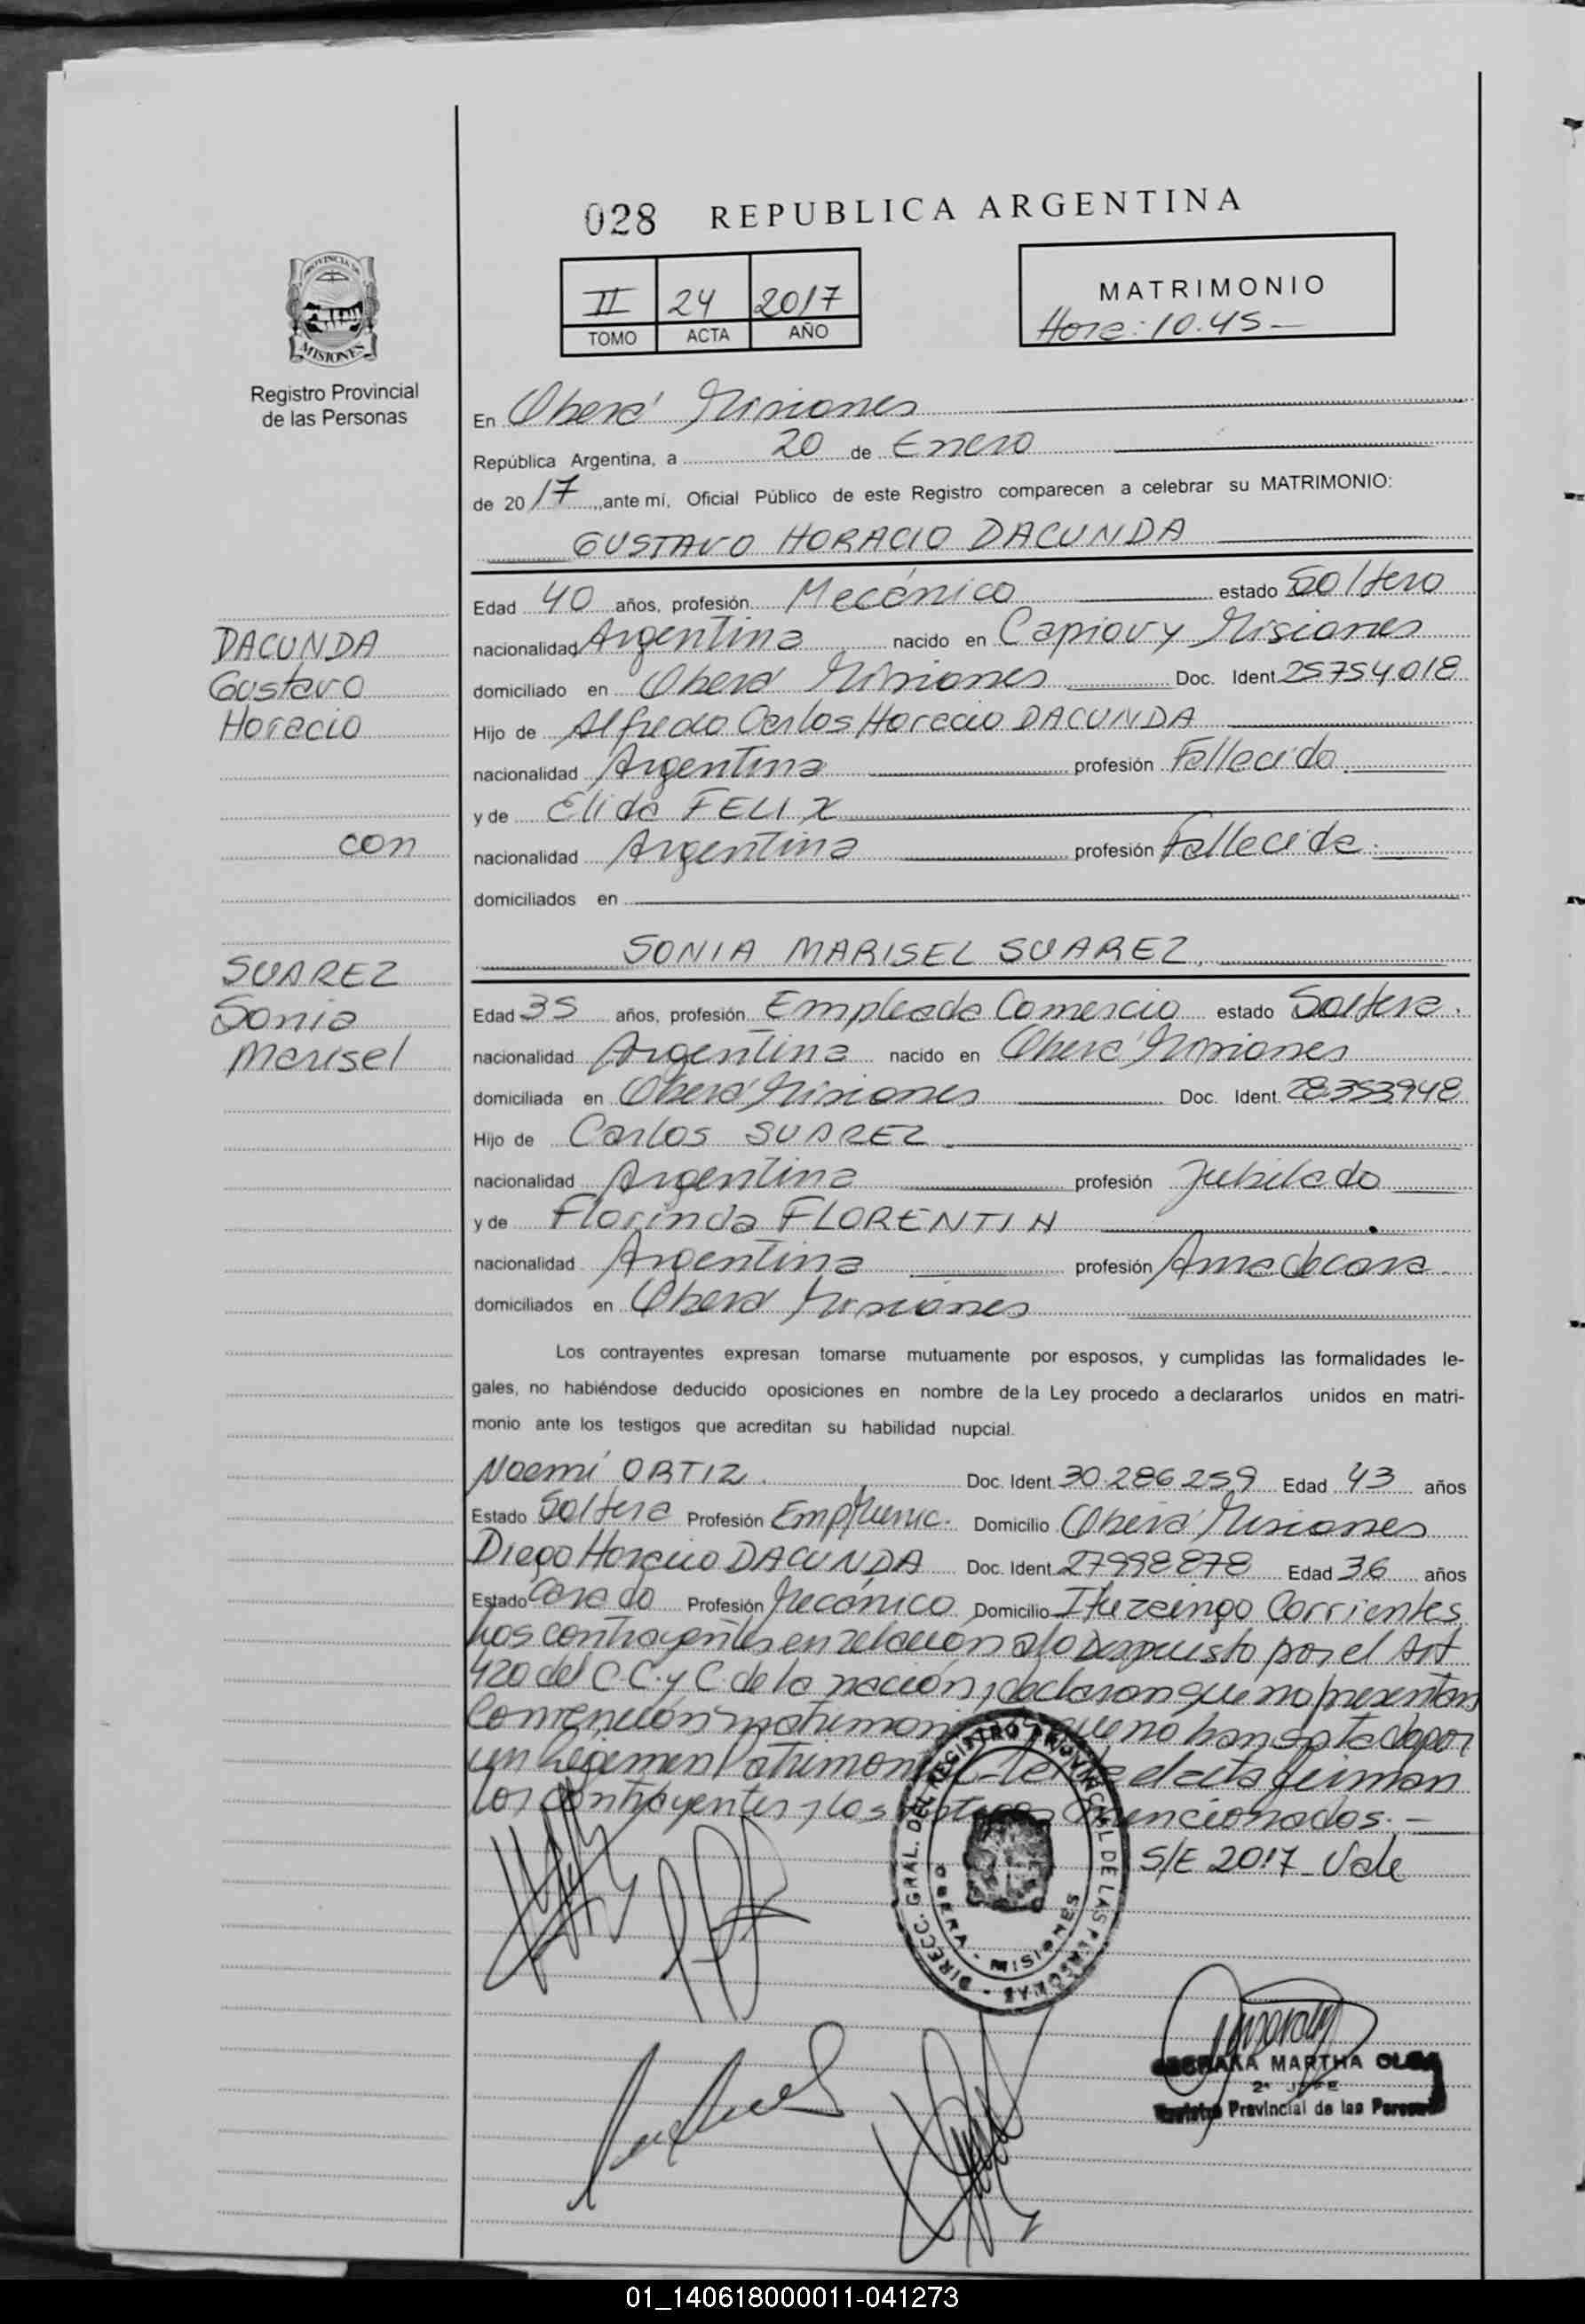 028 REPUBLICA ARGENTINA
PROVINCIA DE
MISIONES
Registro Provincial
de las Personas
II 24 2017
TOMO ACTA AÑO
MATRIMONIO
Hora: 10.45 —
En Oberá Misiones
República Argentina, a 20 de Enero
de 2017, ante mí, Oficial Público de este Registro comparecen a celebrar su MATRIMONIO:
GUSTAVO HORACIO DACUNDA
Edad 40 años, profesión Mecánico estado Soltero
nacionalidad Argentina nacido en Capiovy Misiones
domiciliado en Oberá Misiones Doc. Ident. 25754018
Hijo de Alfredo Carlos Horacio DACUNDA
nacionalidad Argentina profesión Fallecido
y de Elida FELIX
nacionalidad Argentina profesión Fallecida.
domiciliados en
DACUNDA
Gustavo
Horacio
con
SUAREZ
Sonia
Marisel
SONIA MARISEL SUAREZ.
Edad 35 años, profesión Empleada Comercio estado Soltera.
nacionalidad Argentina nacido en Oberá Misiones
domiciliada en Oberá Misiones Doc. Ident. 28353948
Hijo de Carlos SUAREZ
nacionalidad Argentina profesión Jubilado
y de Florinda FLORENTIN
nacionalidad Argentina profesión Ama de casa
domiciliados en Oberá Misiones
Los contrayentes expresan tomarse mutuamente por esposos, y cumplidas las formalidades le-
gales, no habiéndose deducido oposiciones en nombre de la Ley procedo a declararlos unidos en matri-
monio ante los testigos que acreditan su habilidad nupcial.
Noemí ORTIZ. Doc. Ident. 30.286.259 Edad 43 años
Estado Soltera Profesión Emp. Munic. Domicilio Oberá Misiones
Diego Horacio DACUNDA Doc. Ident. 27998878 Edad 36 años
Estado Casado Profesión Mecánico Domicilio Ituzaingo Corrientes
Los contrayentes en relación a lo dispuesto por el Art
420 del C.C. y C. de la nación, declaran que no presentan
Convención matrimonial que no han optado por
un Régimen Patrimonial el acta firman
los contrayentes y los testigos mencionados. —
S/E 2017 Vale
DIRECC. GRAL. DEL REGISTRO PROVINCIAL DE LAS PERSONAS
OBERA - MISIONES
MARTHA OLGA
2° JEFE
Registro Provincial de las Personas
01_140618000011-041273